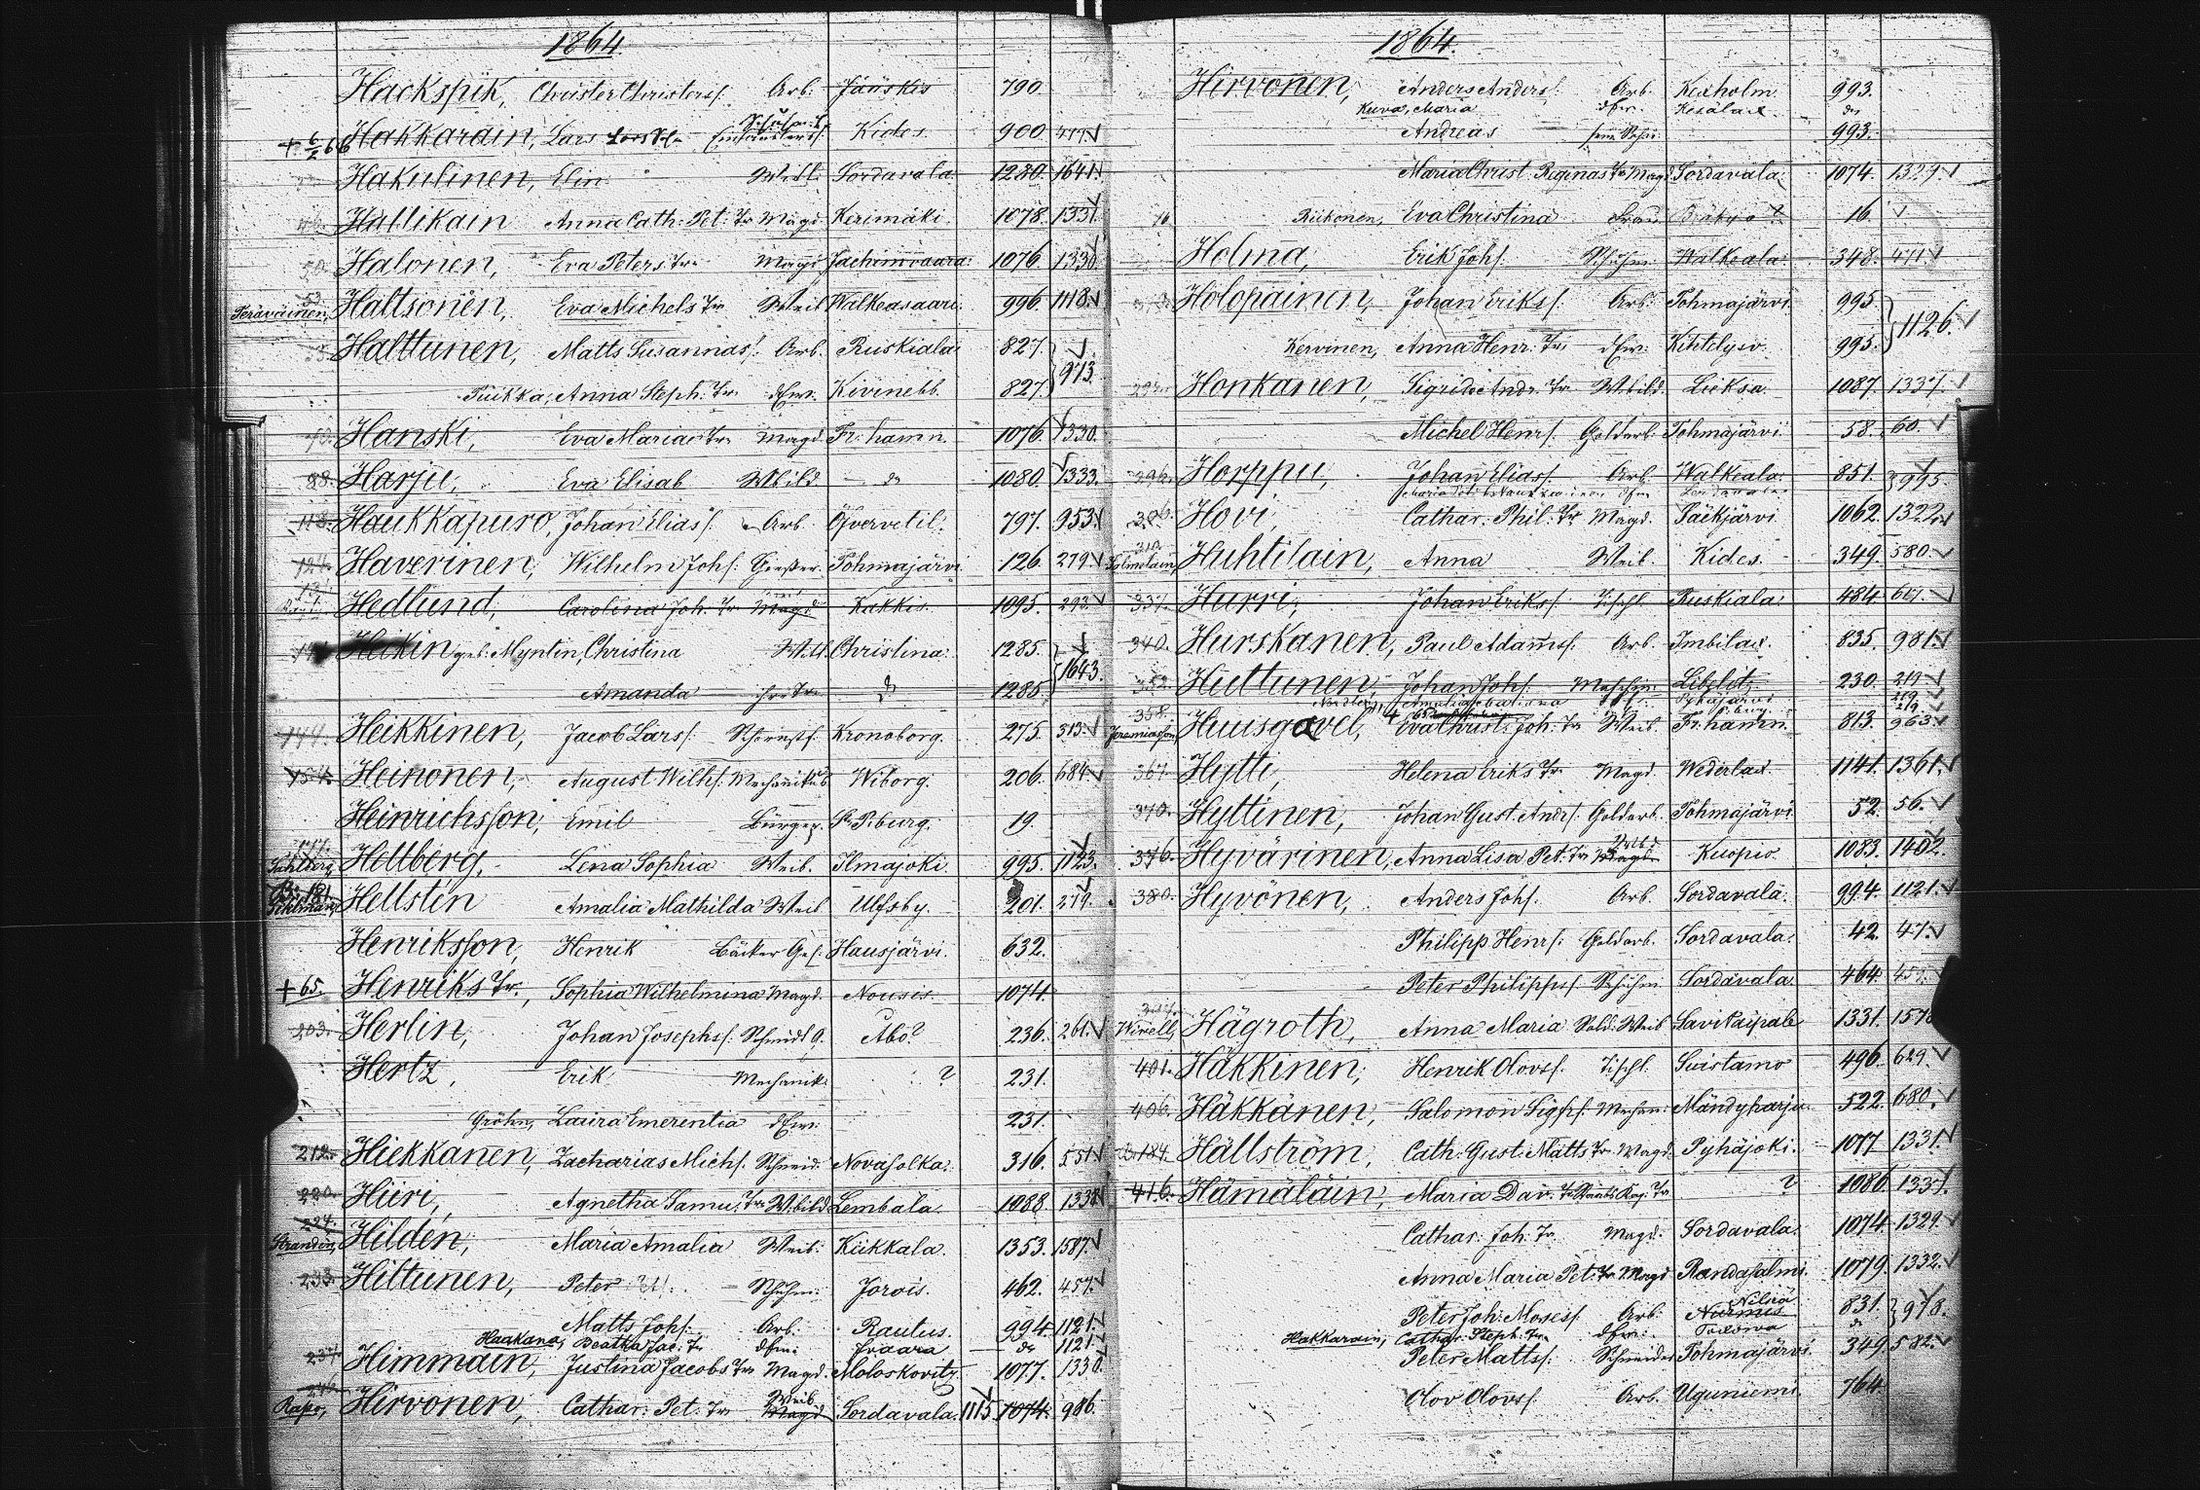 1864.
Hackspik, Christer Christers/. Arb: Jääskis 790.
+ 6/2 66 Hakkarain, Lars Einhäuslers/. Schuhm. Kides. 900. 477 √
Hakulinen, Elin Weibl. Sordavala. 1280. 1641. √
Hallikain Anna Cath: Pet: Tr Magd. Kerimäki. 1078. 1331. √
50. Halonen, Eva Peters Tr. Magd Jachimvaara. 1076. 1330. √
53.
Teräväinen, Haltsonen, Eva Michels Tr Weib Walkeasaari. 996. 1118. √
Halttunen, Matts Susannas/. Arb. Ruskiala. 827. √
913.
Puikka, Anna Steph: Tr. dEw. Kivinebb. 827.
70. Hanski, Eva Maria Tr. Magd. Fr:hamn. 1076. 1330. √
88. Harju, Eva Elisab Wbild. d 1080. 1333. √
113. Haukkapuro, Johan Elias/. Arb. Öfvervetil. 797. 953. √
124. Haverinen, Wilhelm Joh/. Giesser. Tohmajärvi. 126. 279 √
131.
Hedlund, Carolina Joh. Tr Magd Kakkis. 1095. 292. √
Heikin geb: Myntin, Christina Wit. Christina. 1285. √
1643.
Amanda ihre Tr. d 1285.
149. Heikkinen, Jacob Lars/. Schornstf. Kronoborg. 275. 313. √
154. Heinonen, August Wilh/. Mechanikus Wiborg. 206. 684. √
Heinrichsson, Emil Bürger. St P:burg. 19.
Hellberg, Lena Sophia Weib. Ilmajoki. 995. 1123. √
181.
Hellstén Amalia Mathilda Weib Ulfsby. 201. 279. √
Henriksson, Henrik Bäcker Ges/. Hausjärvi. 632.
+ 65. Henriks Tr., Sophia Wilhelmina Magd. Nousis. 1074.
203. Herlin, Johan Josephs/. Schmidt G. Åbo? 236. 261. √
Hertz, Erik Mechanik. ? 231.
Gröhn, Laura Emerentia dEw: 231.
212. Hiekkanen, Zacharias Mich/. Schneid. Novasolka. 316. 551 √
220. Hiiri, Agnetha Samu. Tr Wbild Lembala 1088. 1338. √
224.
Strandén, Hildén, Maria Amalia Weib. Kiikkala. 1353. 1587. √
233. Hiltunen, Peter Schuhm. Jorois. 462. 457. √
Matts Joh/. Arb. Rautus. 994. 1121. √
Haakana, Beatha Jac: Tr dEw: Ivaara do 1121. √
237. Himmain, Justina Jacobs Tr Magd. Moloskovitz 1077. 1330. √
240.
Rapo, Hirvonen, Cathar. Pet: Tr Weib Magd Sordavala. 1115. 1074. 986. √
1864.
Hirvonen, Anders Anders/. Arb. Kexholm. 993.
Kuva, Maria dEw. Kesälax. do
Andreas sein Sohn 993.
Maria Christ. Reginas Tr Magd Sordavala. 1074. 1329. √
16 Riikonen, Eva Christina Frau ? 16. √
Holma, Erik Joh/. Schuhm. Walkeala. 348. 471 √
Holopainen, Johan Eriks/. Arb. Tohmajärvi 995.
1126. √
Kervinen, Anna Henr: Tr. dEw: Kihtelysv. 995.
Honkanen, Sigrid Andr. Tr Wbild. Lieksa. 1087. 1337. √
Michel Henr/. Goldarb. Tohmajärvi. 58. 60. √
Horppu, Johan Elias/. Arb. Walkeala. 851. 995. √
306. Hovi, Cathar. Phil: Tr Magd. Pälkjärvi 1062. 1322. √
310.
Huhtilain, Anna Weib. Kides. 349. 580. √
337. Hurri, Johan Eriks/. Tischl. Ruskiala. 484. 617. √
340. Hurskanen, Paul Adams/. Arb. Imbilax. 835. 981. √
352. Huttunen, Johan Joh/. Maschin. Libelits. 230. 219 √
Nordberg, 219. √
358.
Jeremiasson, Huusgavel, Eva Christ. Joh. Tr Weib. Fr:hamn. 813. 963. √
367. Hytti, Helena Eriks Tr Magd. Wederlax. 1141. 1361. √
370. Hyttinen, Johan Gust. Andr/. Goldarb. Tohmajärvi 52. 56. √
376. Hyvärinen, Anna Lisa Pet: Tr Wbild Magd Kuopio. 1083. 1402. √
380. Hyvönen, Anders Joh/. Arb. Sordavala. 994. 1121. √
Philipp Henr/. Goldarb. Sordavala. 42. 47. √
Peter Philipps/. Schuhm Sordavala 464. 459. √
Hägroth, Anna Maria Sold. Weib Savitaipale 1331. 1578
401. Häkkinen, Henrik Olovs/. Tischl. Suistamo 496. 629. √
406. Häkkänen, Salomon Sigfr/. Mechan: Mändyharju. 522. 680. √
Hällström, Cath: Gust: Matts Tr Magd. Pyhäjoki. 1077 1331. √
416. Hämäläin, Maria Dav. Tr ? 1086. 1337. √
Cathar. Joh: Tr. Magd. Sordavala. 1074. 1329. √
Anna Maria Pet: Tr Magd Randasalmi. 1079. 1332. √
Peter Joh: Moses/. Arb. Nilsiä Nurmis 831. 978. √
Hakkarain, Cathar. Steph. Tr. dEw: Toxowa do
Peter Matts/. Schneider Tohmajärvi 349. 582. √
Olov Olovs/. Arb. Uguniemi 764.